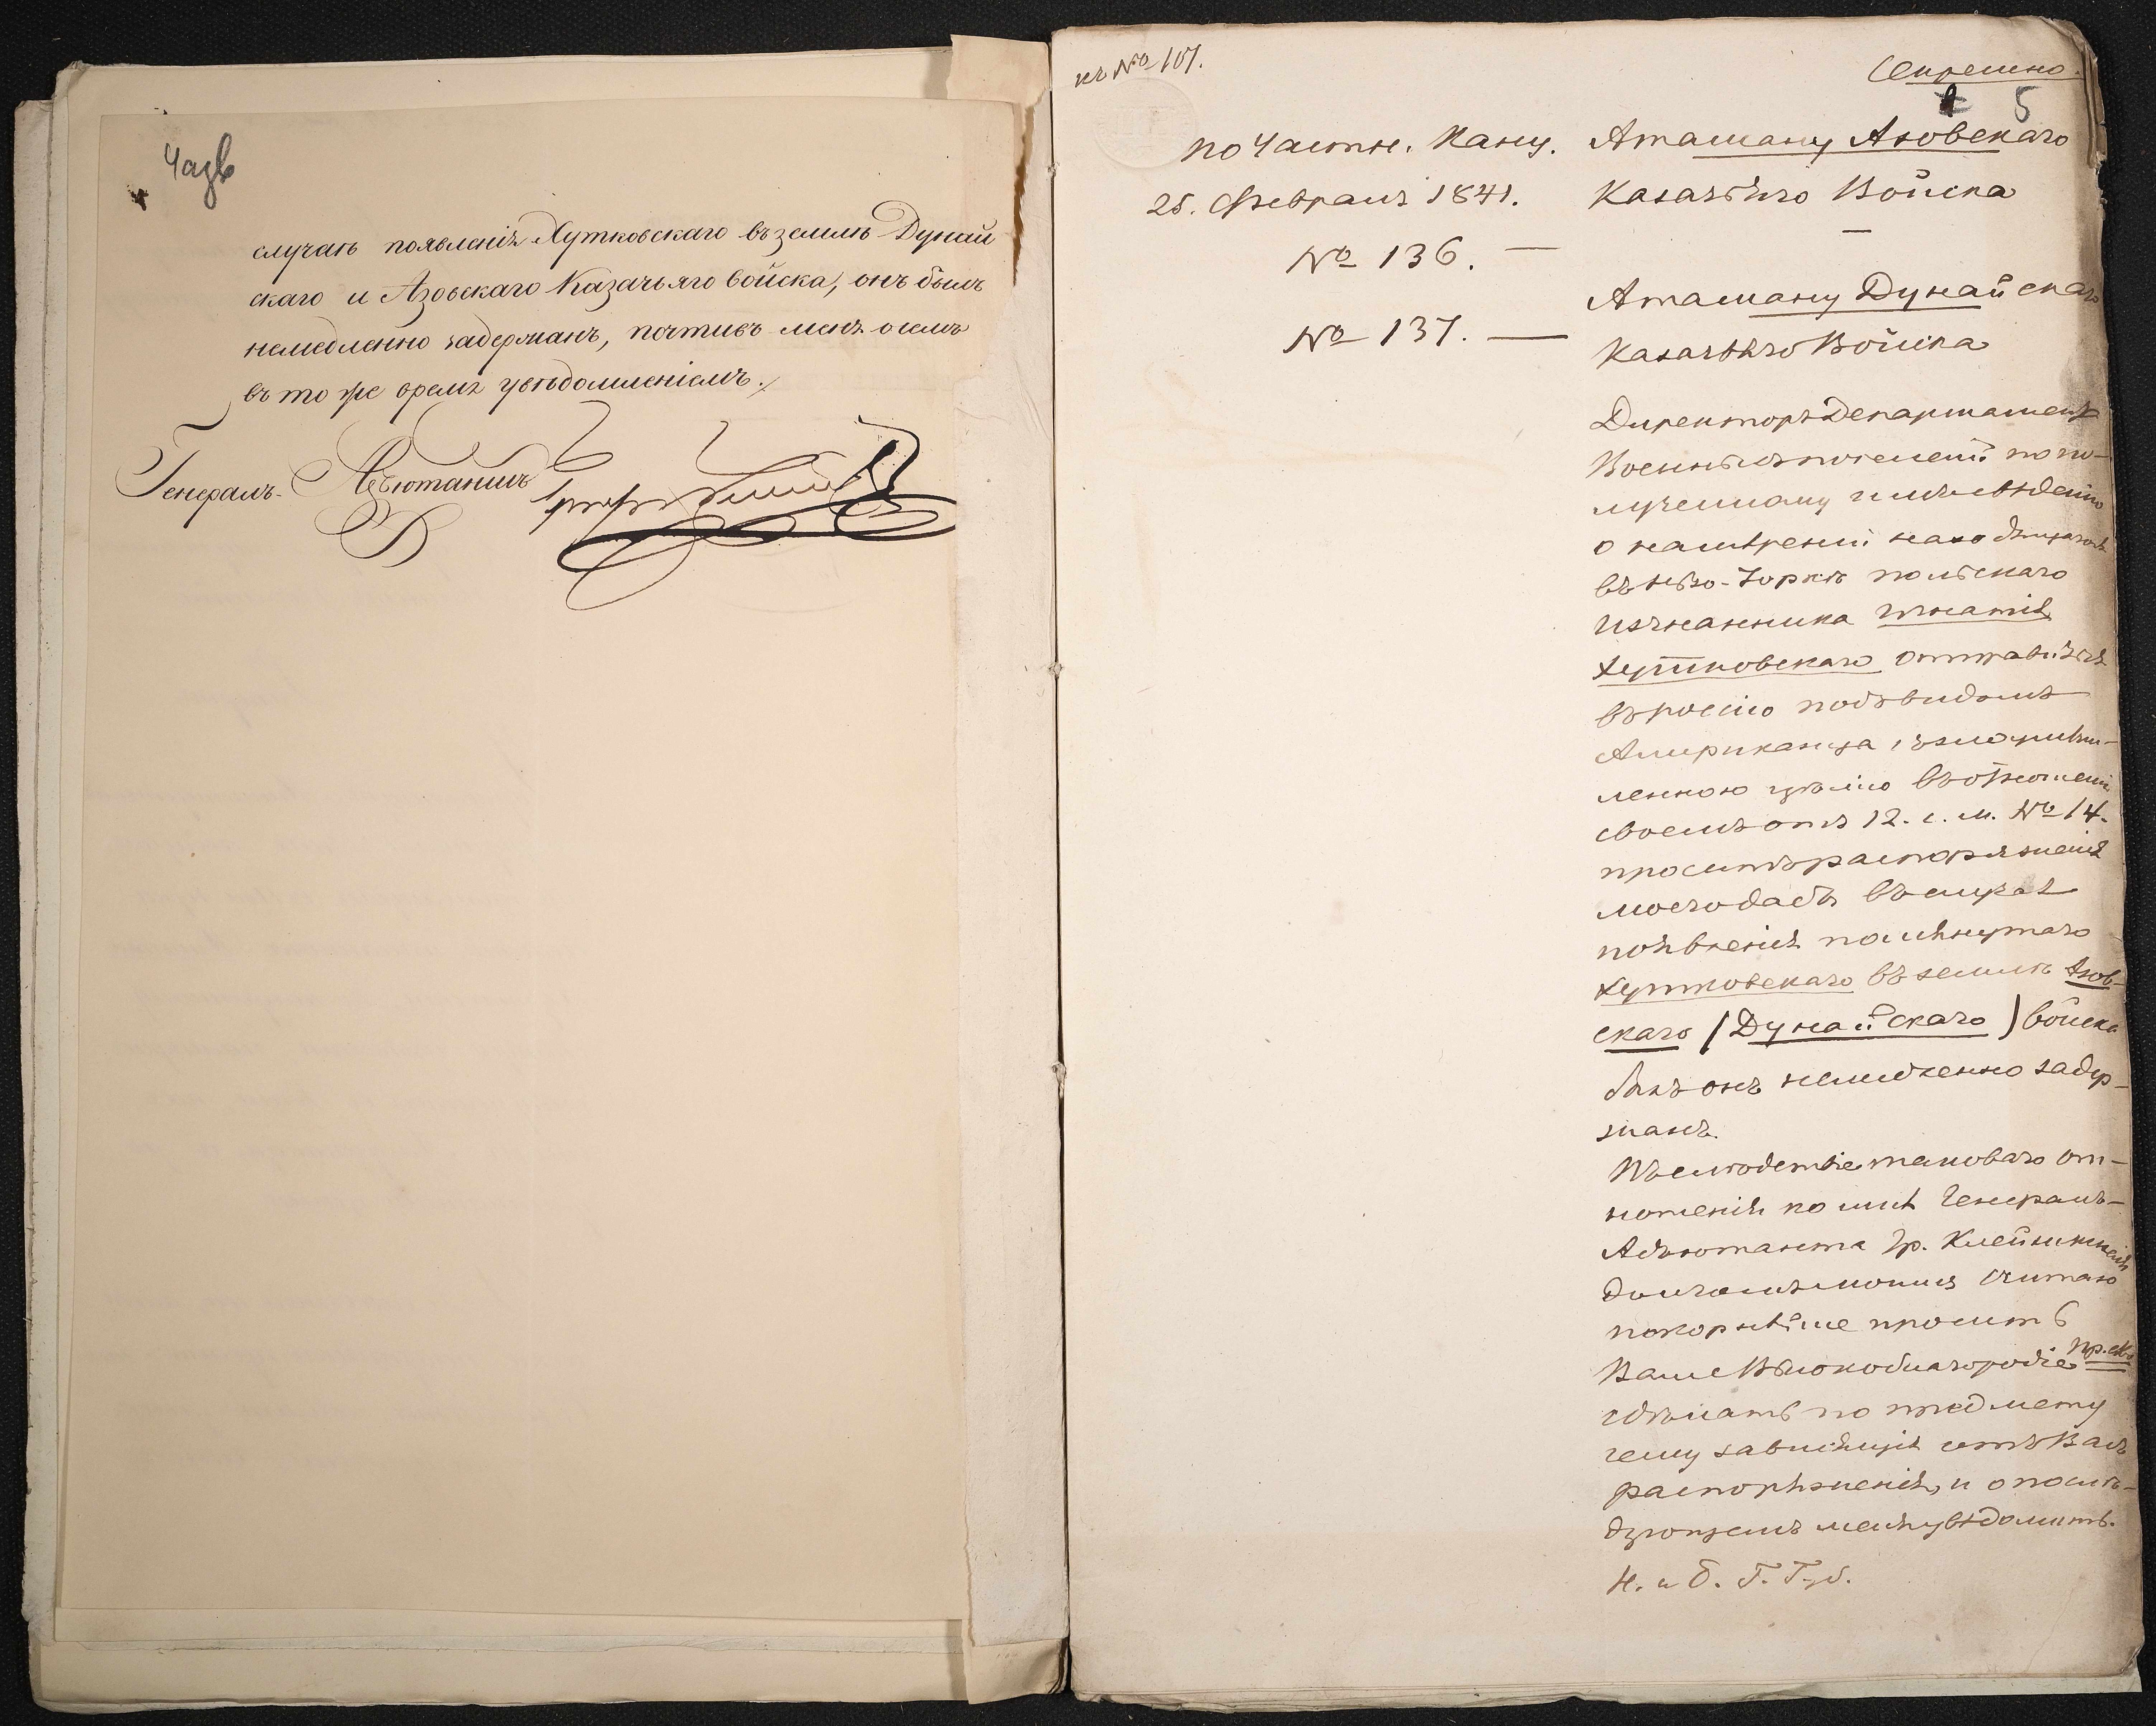 4 адв
случаѣ появленія Хутковскаго въ землѣ Дунай
скаго и Азовскаго Казачьяго войска, онъ былъ
немедленно задержанъ, почтивъ меня о семъ
въ то же время увѣдомленіемъ.
Генералъ-Адъютантъ
къ № 107.
Секретно.
5
по Частн. Канц.
25. Февраля 1841.
№ 136. —
№ 137. —
Атаману Азовскаго
Казачьяго Войска
—
Атаману Дунайскаго
Казачьяго Войска
Директоръ Департамента
Военныхъ поселеній по по-
лученному имъ свѣденію
о намѣреніи находящагося
въ Нью-Іоркѣ польскаго
изгнанника Игнатія
Хутковскаго отправиться
въ Россію подъ видомъ
Американца, съ злоумыш-
ленною цѣлію въ отношеніи
своемъ отъ 12. с. м. № 14.
проситъ распоряженія
моего дабы въ случаѣ
появленія помянутаго
Хутковскаго въ землѣ Азов-
скаго (Дунайскаго) войска
былъ онъ немедленно задер-
жанъ.
Въ слѣдствіе таковаго от-
ношенія ко мнѣ Генералъ-
Адъютанта Гр. Клейнмихеля
долгомъ моимъ считаю
покорнѣйше просить
Ваше Высокоблагородіе Пр.-ство
сдѣлать по предмету
сему зависящія отъ Васъ
распоряженія, и о послѣ-
дующемъ меня увѣдомить.
Н. и Б. Г. Губ.